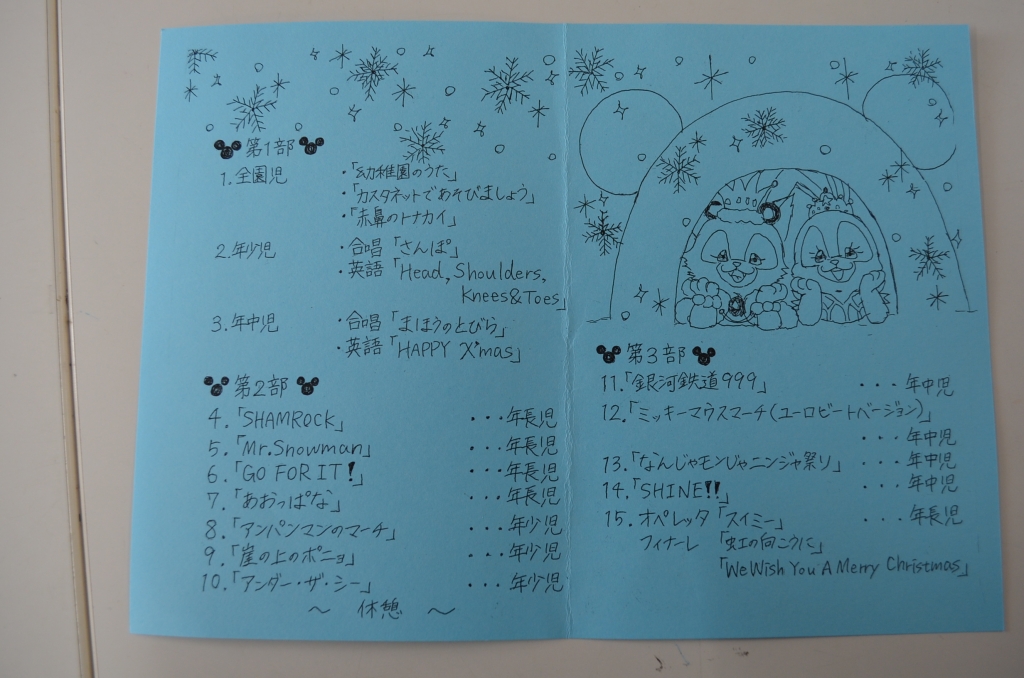 第1部
1. 全園児 ・「幼稚園のうた」
・「カスタネットであそびましょう」
・「赤鼻のトナカイ」
2. 年少児 ・合唱「さんぽ」
・英語「Head, Shoulders,
Knees&Toes」
3. 年中児 ・合唱「まほうのとびら」
・英語「HAPPY X'mas」
第2部
4.「SHAMROCK」 ・・・年長児
5.「Mr.Snowman」 ・・・年長児
6.「GO FOR IT!」 ・・・年長児
7.「あおっぱな」 ・・・年長児
8.「アンパンマンのマーチ」 ・・・年少児
9.「崖の上のポニョ」 ・・・年少児
10.「アンダー・ザ・シー」 ・・・年少児
～ 休憩 ～
第3部
11.「銀河鉄道999」 ・・・年中児
12.「ミッキーマウスマーチ(ユーロビートバージョン)」
・・・年中児
13.「なんじゃモンじゃニンジャ祭り」 ・・・年中児
14.「SHINE!!」 ・・・年中児
15. オペレッタ「スイミー」 ・・・年長児
フィナーレ 「虹の向こうに」
「We Wish You A Merry Christmas」